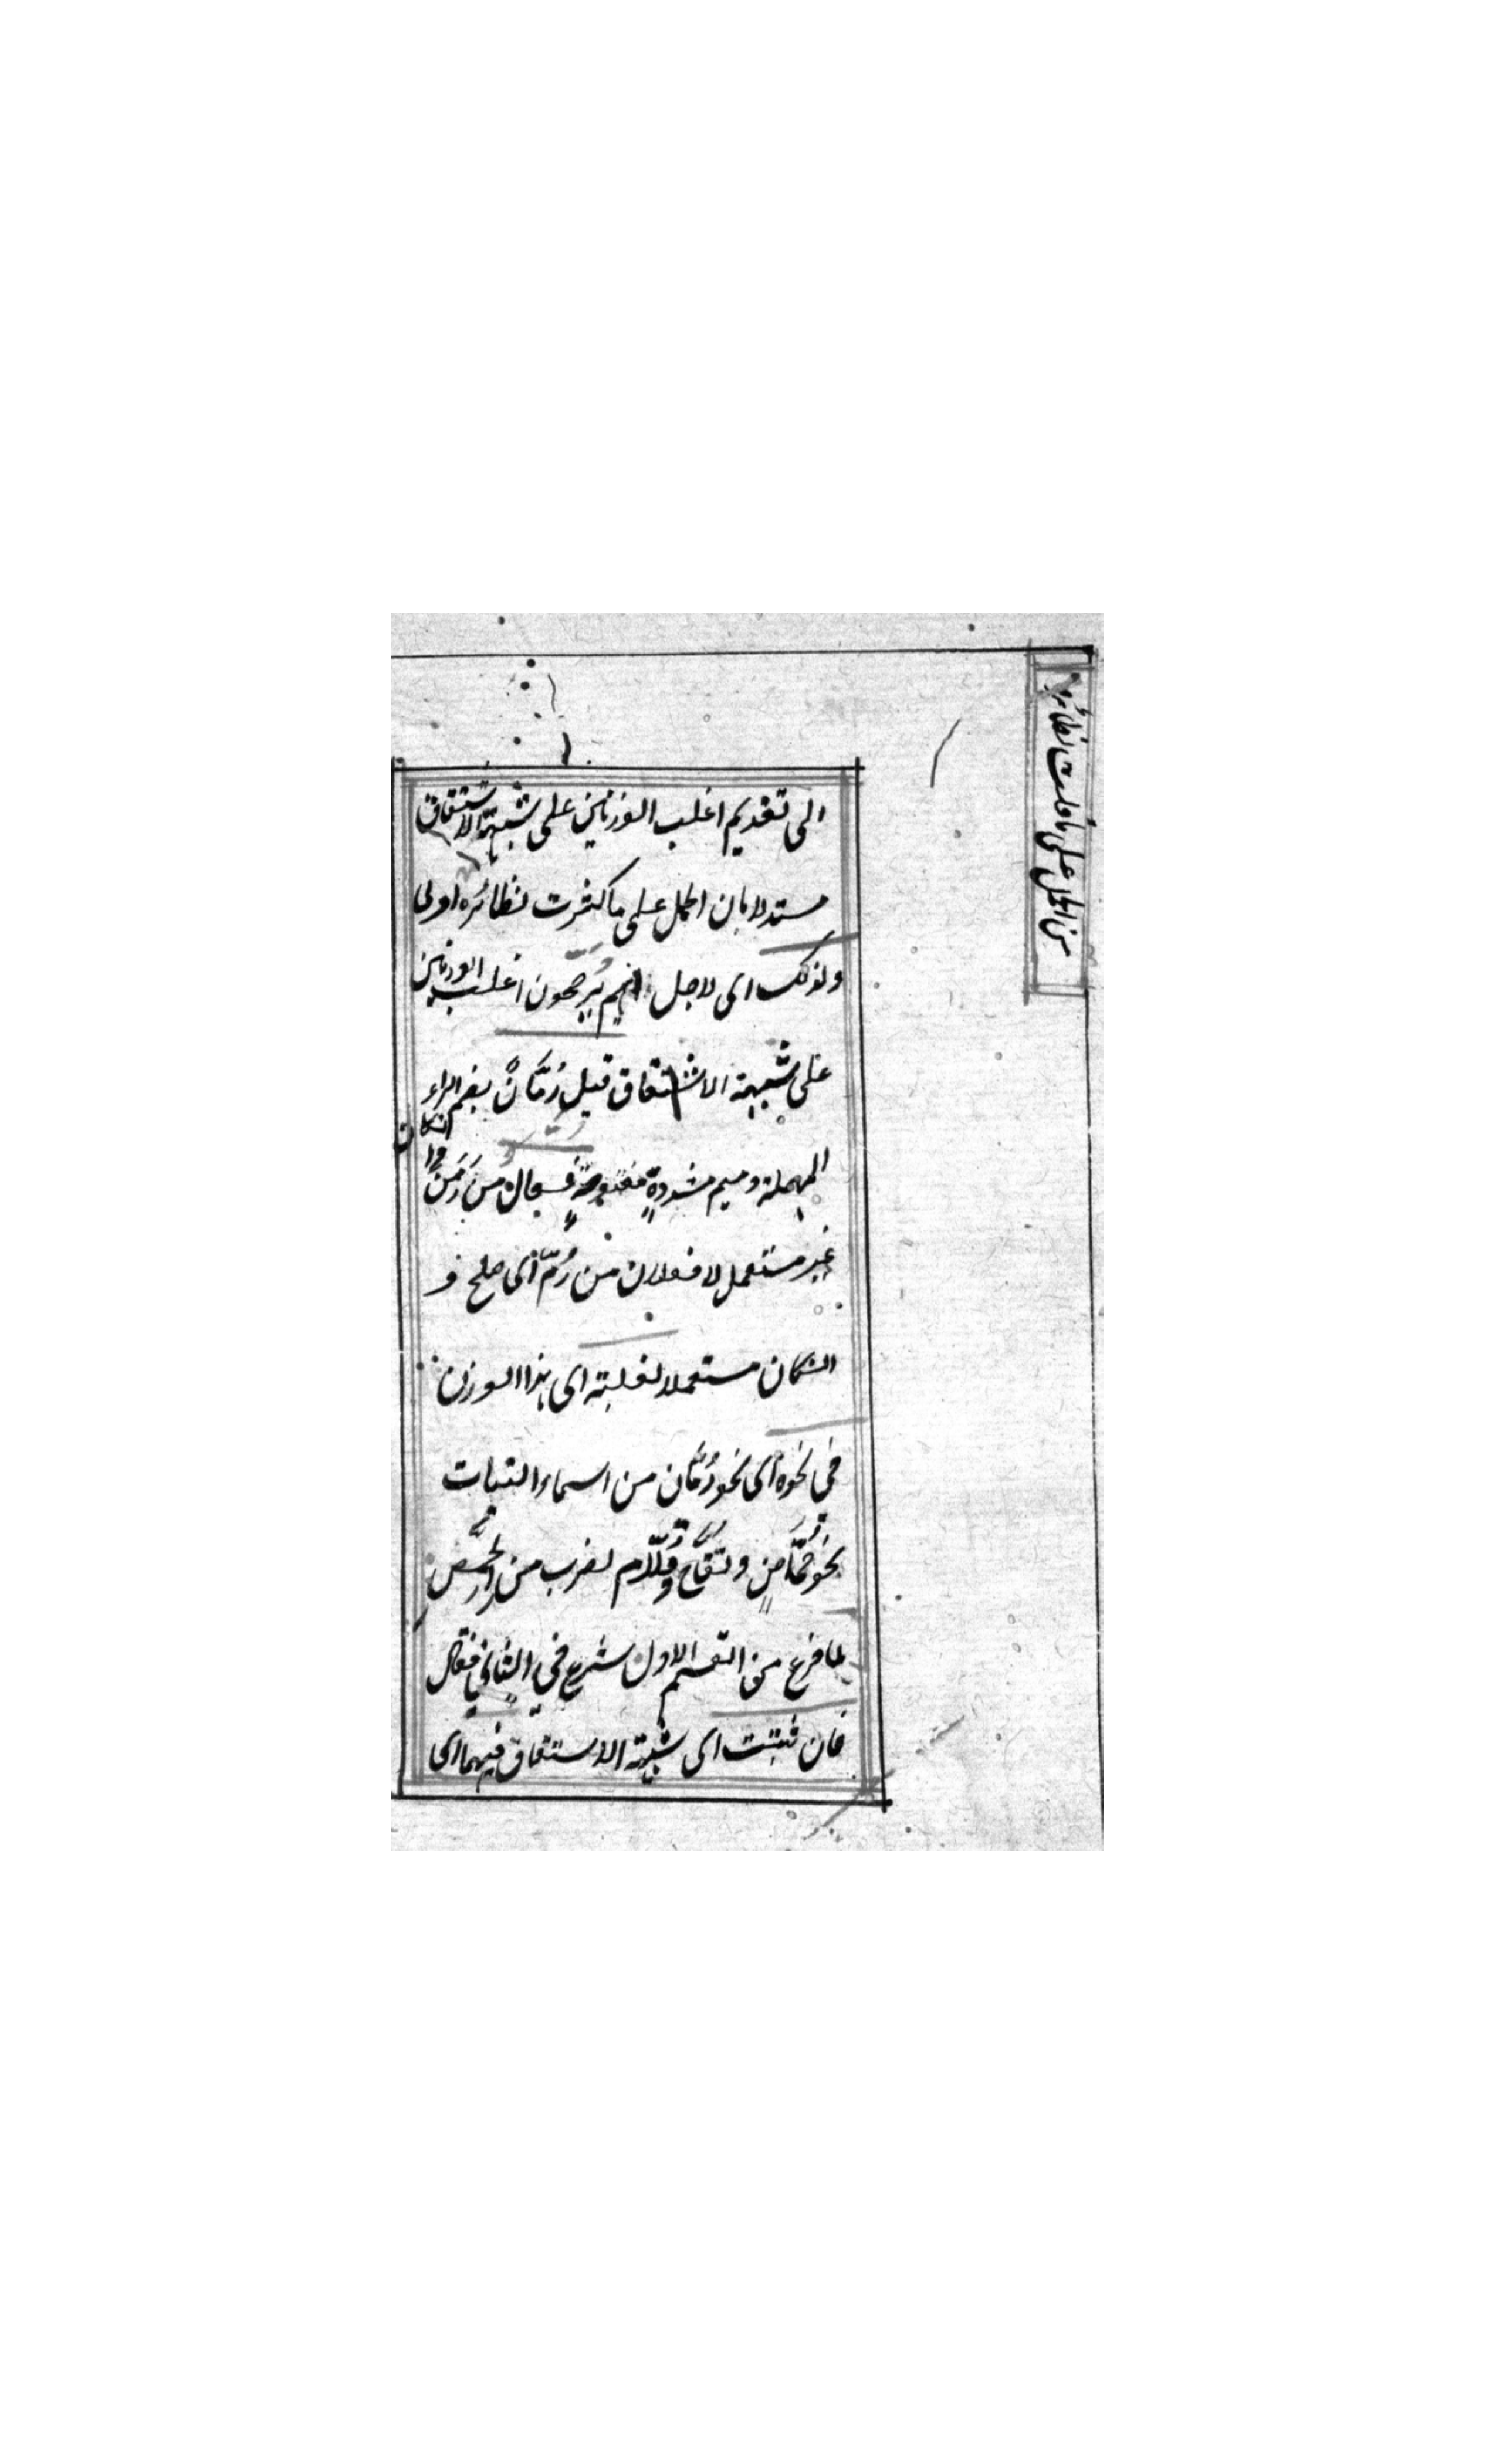 الى تقديم اغلب الوزنين على شبهة الاشتقاق
مستدلا بان الحمل على ما كثرت نظائره اولى
من الحمل على ما قلت نظائره
ولذلك اى لاجل انهم يُرجحون اغلب الوزنين
على شبهة الاشتقاق قيل رُمّانٌ بضم الراء
المهملة وميم مشددةٍ مفتوحةٍ فُعال من رَمَنَ وان كان
غير مستعمل لا فعلان من رُمّ اى صلح و
ان كان مستعملا لغلبته اى هذا الوزن
فى نحوه اى نحو رُمّان من اسماء النبات
نحو حُمّاضٍ وتفّاح وقُلّام لضرب من الحمض
لما فرغ من القسم الاول شرع فى الثانى فقال
فان ثبتت اى شبهة الاشتقاق فيهما اى